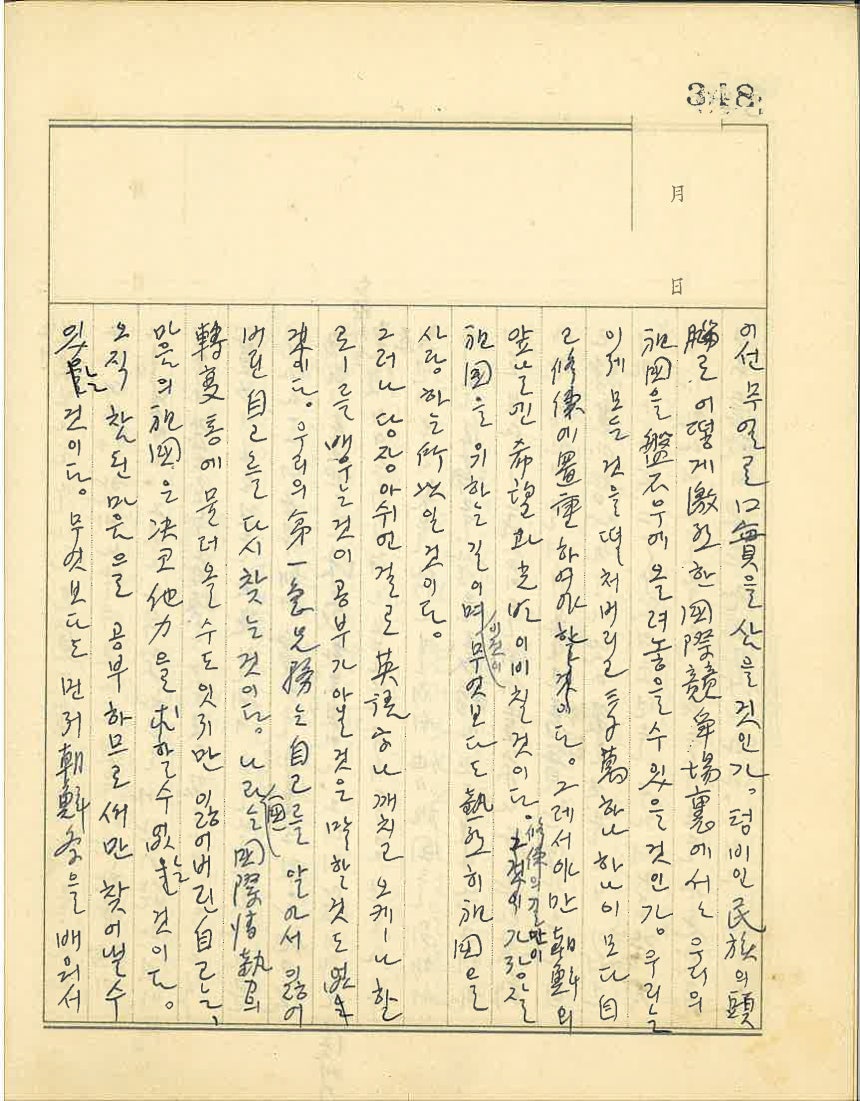 348
月
日
이선 무얼로 口實을 삼을것인가. 텅비인 民族의 頭
腦로 어떻게 激烈한 國際競爭場裏에서는 우리의
祖國을 盤石우에 올려놓을수 있을 것인가. 우리는
이제 모든 것을 떨처버리고 千萬 하나하나이 모다 自
己修練에 置重하여야 할것이다. 그레서야만 朝鮮의
앞날엔 希望과 光明이 비칠것이다. 修練의 길만이 가장 잘
祖國을 위하는 길이며 이것이 무엇보다도 熱烈히 祖國을
사랑하는 所以일 것이다.
그러나 당장 아쉬운 걸로 英語하나 깨치고 오케ー나 할
로ー를 배우는것이 공부가 아닐것은 말할것도 없을
것이다. 우리의 第一急先務는 自己를 알아서 잃어
버린 自己를 다시 찾는것이다. 나라는 國際情勢의
轉變통에 물러올수도 잇지만 잃어버린 自己는,
마음의 祖國은 決코 他力을 求할수 없는 것이다.
오직 참된 마음으로 공부하므로써만 찾어낼수
있는 것이다. 무엇보다도 먼저 朝鮮을 배워서